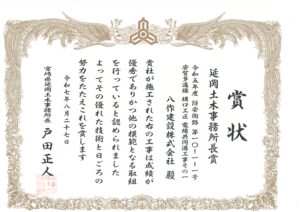 賞状
延岡土木事務所長賞
令和五年度 防安街路 第一〇-一-一号
安賀多通線 樋口工区 電線共同溝工事その一
八作建設株式会社 殿
貴社が施工された右の工事は成績が
優秀でありかつ他の模範となる取組
を行っていると認められました
よってその優れた技術と日ごろの
努力をたたえこれを賞します
令和七年八月二十七日
宮崎県延岡土木事務所長 戸田正人